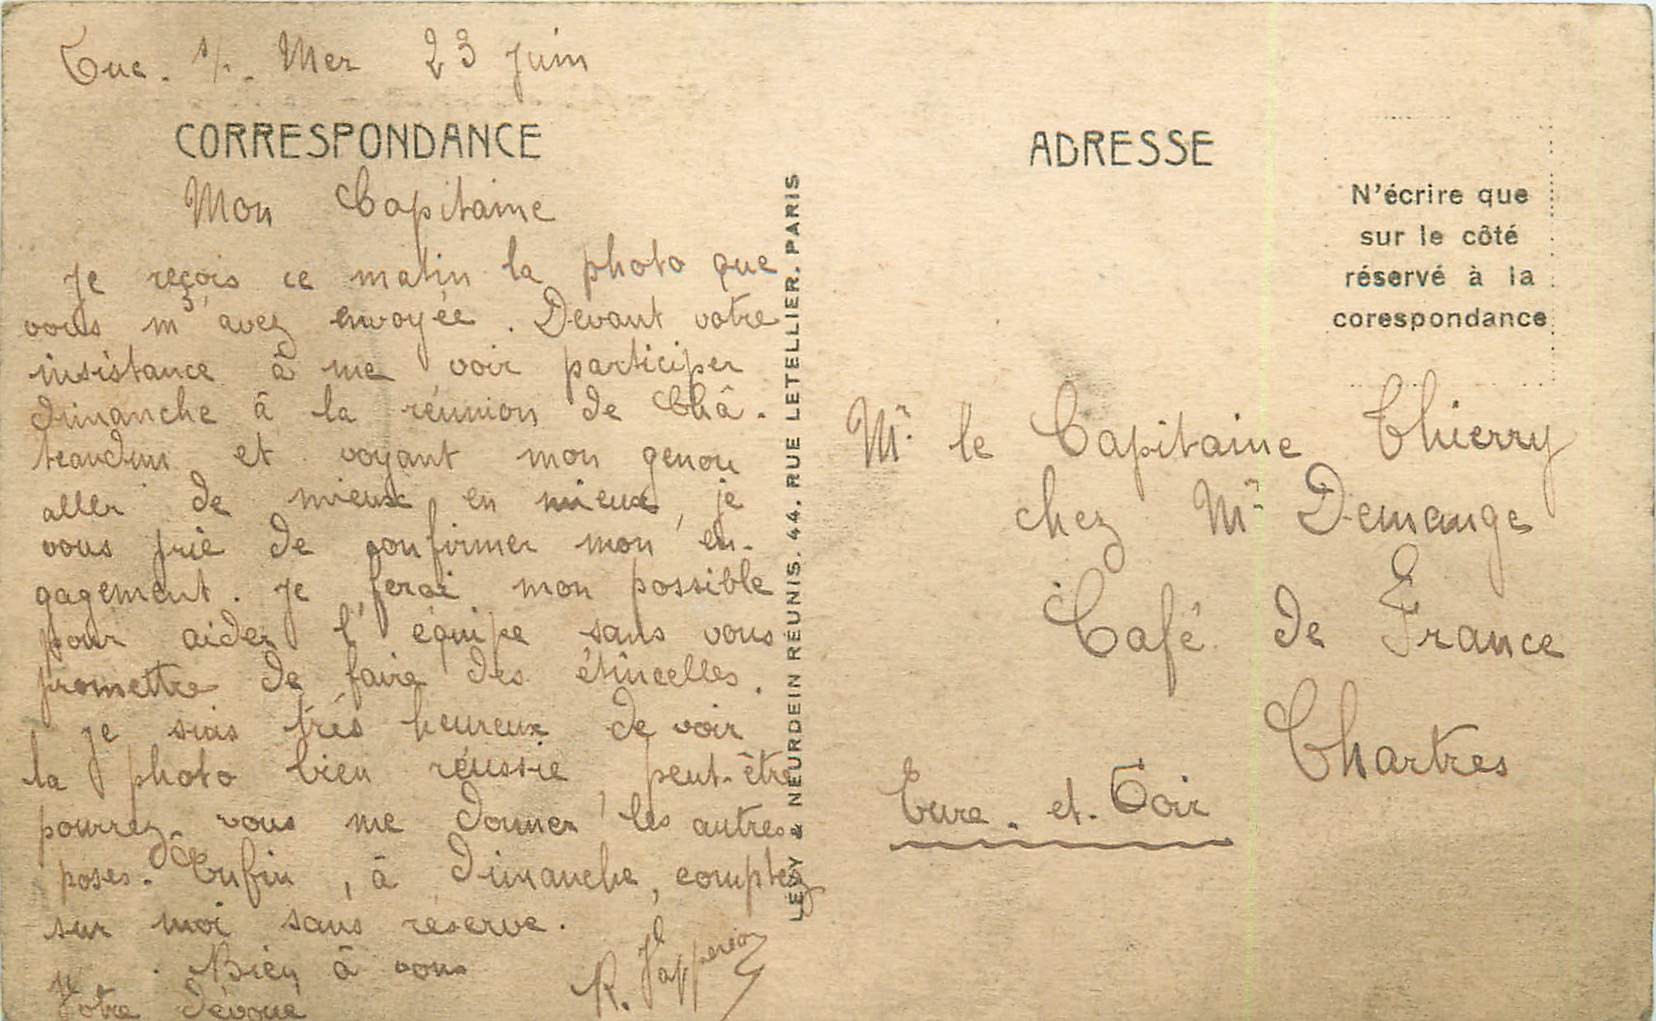 Luc. s/. Mer 23 Juin
CORRESPONDANCE
Mon Capitaine
Je reçois ce matin la photo que
vous m'avez envoyée. Devant votre
insistance à me voir participer
dimanche à la réunion de Châ-
teaudun et voyant mon genou
aller de mieux en mieux, je
vous prie de confirmer mon en-
gagement. Je ferai mon possible
pour aider l'équipe sans vous
promettre de faire des étincelles.
Je suis très heureux de voir
la photo bien réussie, peut-être
pourrez-vous me donner les autres
poses. Enfin, à Dimanche, comptez
sur moi sans réserve.
Bien à vous
Votre dévoué
R.
LEVY & NEURDEIN RÉUNIS. 44. RUE LETELLIER. PARIS
ADRESSE
N'écrire que
sur le côté
réservé à la
corespondance
Mr. le Capitaine Thierry
chez Mr Demange
Café de France
Chartres
Eure. et. Loir